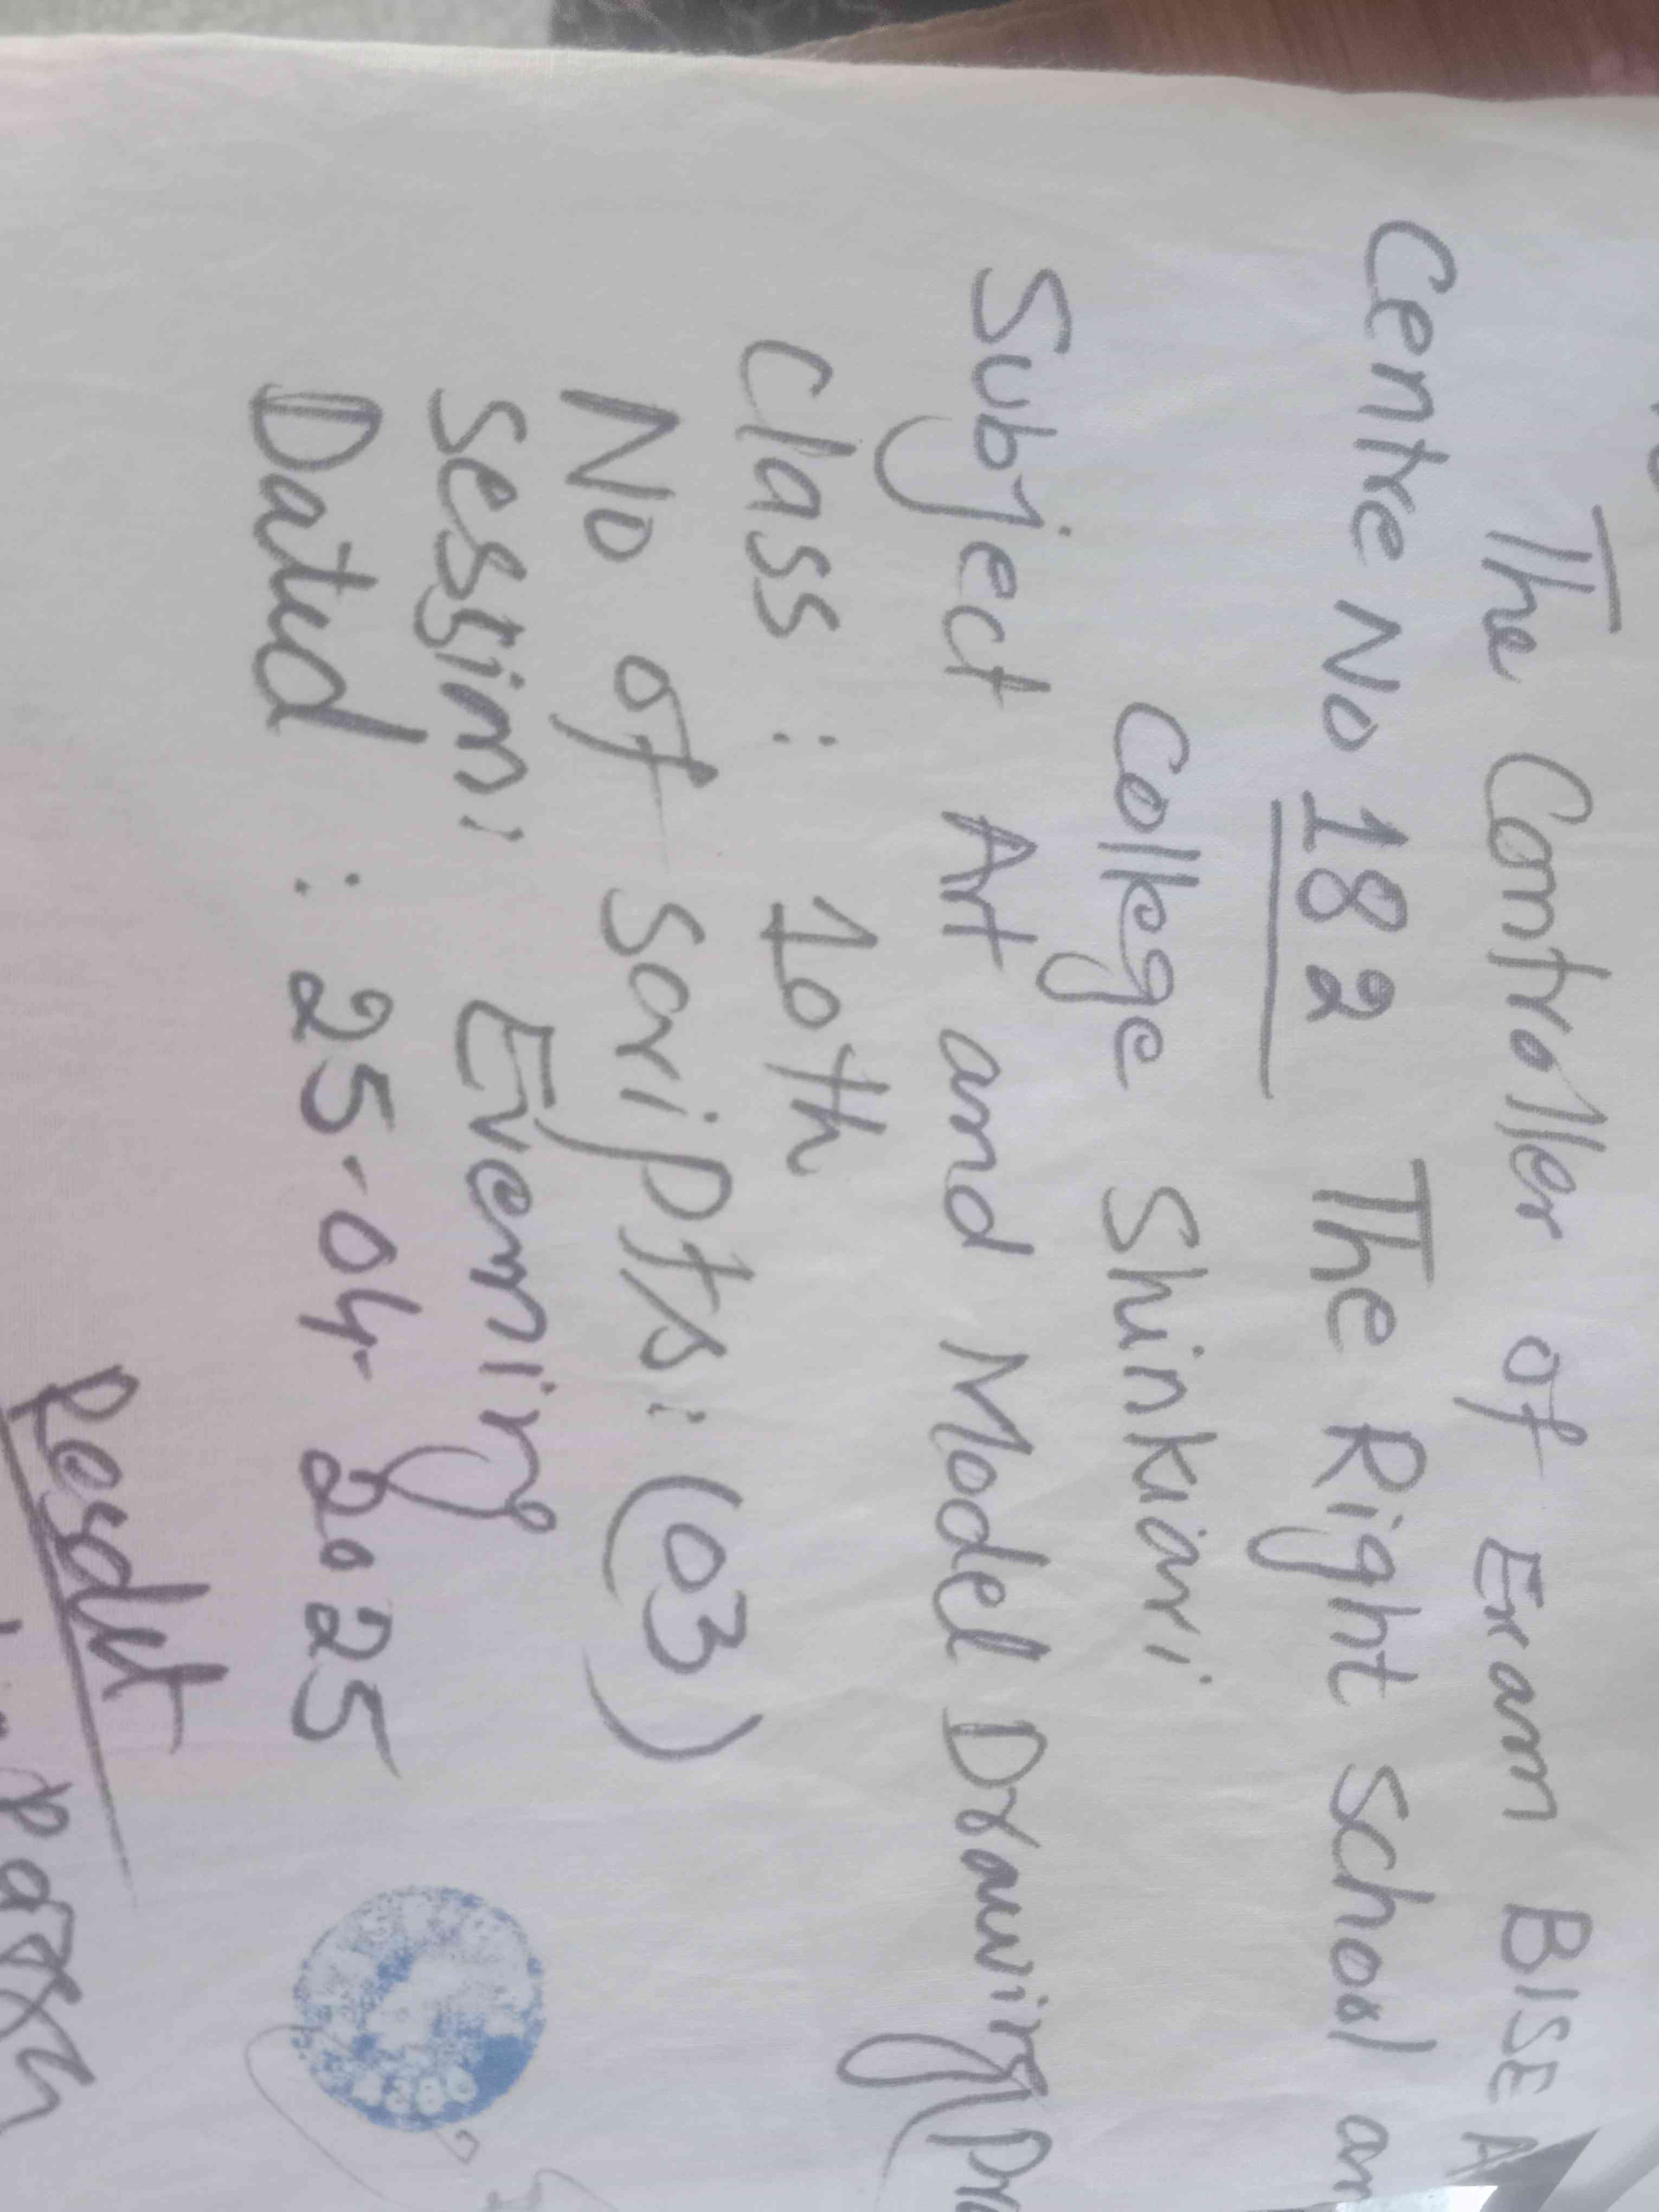 The Controller of Exam BISE A
Centre No 182 The Right School an
College Shinkiari
Subject Art and Model Drawing (Pra
Class : 10th
No of Scripts: (03)
Session: Evening
Dated : 25-04-2025
Resdt